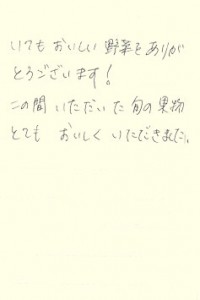 いつもおいしい野菜をありが
とうございます!
この間いただいた旬の果物
とても おいしく いただきました。